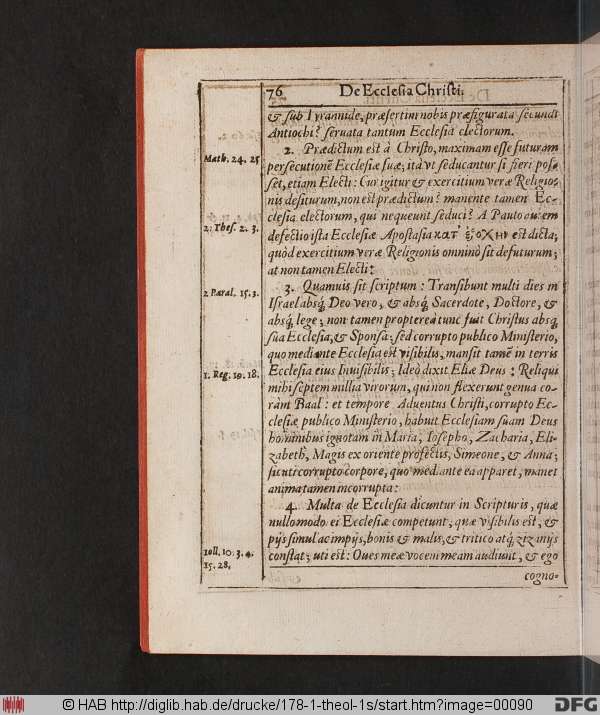 76 De Ecclesia Christi.
& sub Tyrannide, præsertim nobis præfigurata secundi
Antiochi? servata tantum Ecclesia electorum.
2. Prædictum est à Christo, maximam esse futuram
Math. 24. 25
persecutionē Ecclesiæ suæ; ità ut seducantur si fieri pos-
set, etiam Electi: Cur igitur & exercitium veræ Religio-
nis desiturum, non est prædictum? manente tamen Ec-
clesia electorum, qui nequeunt seduci? A Paulo autem
2. Thes. 2. 3.
defectio ista Ecclesiæ Apostasia κατ' ἐξοχὴν est dicta;
quòd exercitium veræ Religionis omninò sit defuturum;
at non tamen Electi?
3. Quamuis sit scriptum: Transibunt multi dies in
2 Paral. 15. 3.
Israel absq; Deo vero, & absq; Sacerdote, Doctore, &
absq; lege; non tamen propterea tunc fuit Christus absq;
sũa Ecclesia, & Sponsa: sed corrupto publico Ministerio,
quo mediante Ecclesia est visibilis, mansit tamē in terris
Ecclesia eius Inuisibilis; Ideò dixit Eliæ Deus: Reliqui
1. Reg. 19. 18.
mihi septem millia virorum, qui non flexerunt genua co-
ràm Baal: et tempore Adventus Christi, corrupto Ec-
clesiæ publico Ministerio, habuit Ecclesiam sũam Deus
hominibus ignotam in Maria, Iosepho, Zacharia, Eli-
zabeth, Magis ex oriente profectis, Simeone, & Anna;
sicuti corrupto corpore, quo mediante ea apparet, manet
anima tamen incorrupta:
4. Multa de Ecclesia dicuntur in Scripturis, quæ
nullo modo ei Ecclesiæ competunt, quæ visibilis est, &
pijs simul ac impijs, bonis & malis, & tritico atq; zizanijs
Ioh. 10. 3. 4.
constat; uti est: Oves meæ vocem meam audiunt, & ego
15. 28.
cogno-
© HAB http://diglib.hab.de/drucke/178-1-theol-1s/start.htm?image=00090
DFG